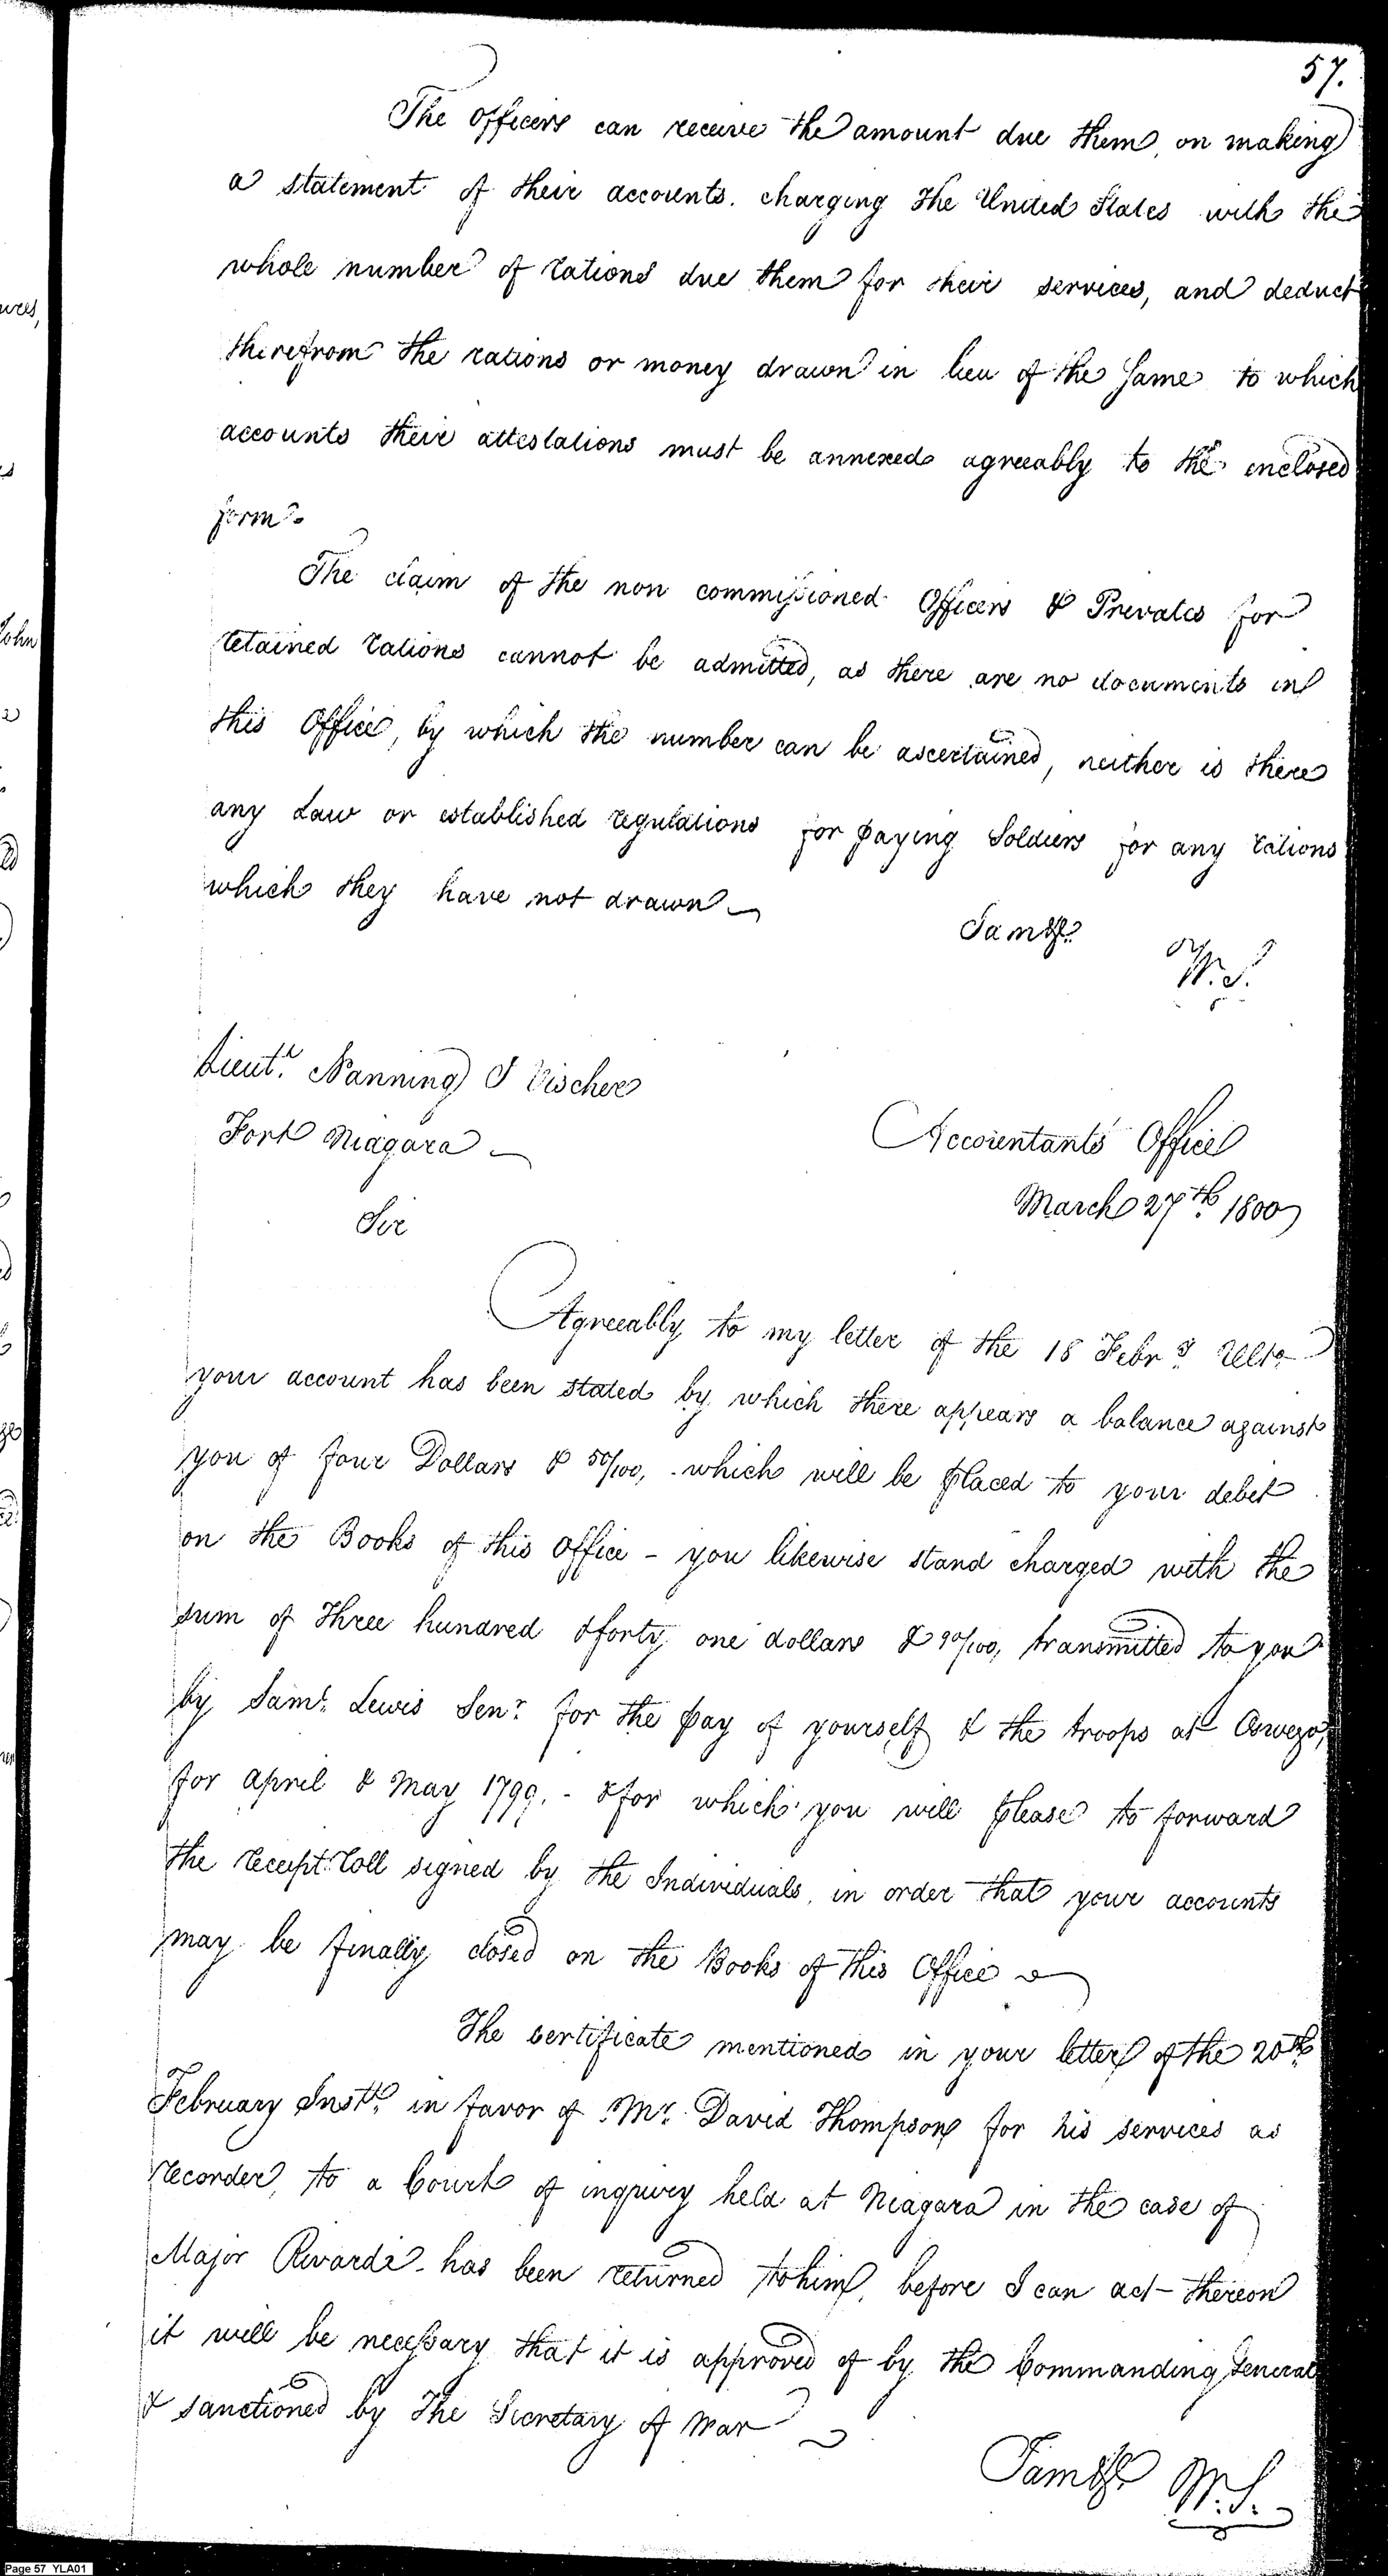 57.
The Officers can receive the amount due them, on making
a statement of their accounts. charging the United States with the
whole number of rations due them for their services, and deduct
therefrom the rations or money drawn in lieu of the Same to which
accounts their attestations must be annexed agreeably to the enclosed
form.
The claim of the non commissioned Officers & Privates for
retained rations cannot be admitted, as there are no documents in
this Office, by which the number can be ascertained, neither is there
any Law or established regulations for paying Soldiers for any rations
which they have not drawn
I am &c.
W. S.
Lieut. Nanning J Vischer
Fort Niagara
Accountants Office
March 27th 1800
Sir
Agreeably to my letter of the 18 Febry Ulto
your account has been stated by which there appears a balance against
you of four Dollars & 50/100, which will be placed to your debit
on the Books of this Office - you likewise stand charged with the
sum of three hundred & forty one dollars & 90/100, transmitted to you
by Saml. Lewis Senr. for the pay of yourself & the troops at Oswego,
for April & May 1799. - & for which you will please to forward
the receipt roll signed by the Individuals, in order that your accounts
may be finally closed on the Books of this Office
The certificate mentioned in your letter of the 20th
February Instt. in favor of Mr. David Thompson for his services as
recorder, to a Court of inquiry held at Niagara in the case of
Major Rivardi - has been returned to him, before I can act thereon
it will be necessary that it is approved of by the Commanding General
& sanctioned by The Secretary of War
I am &c.
W. S.
ures,
John
Page 57 YLA01